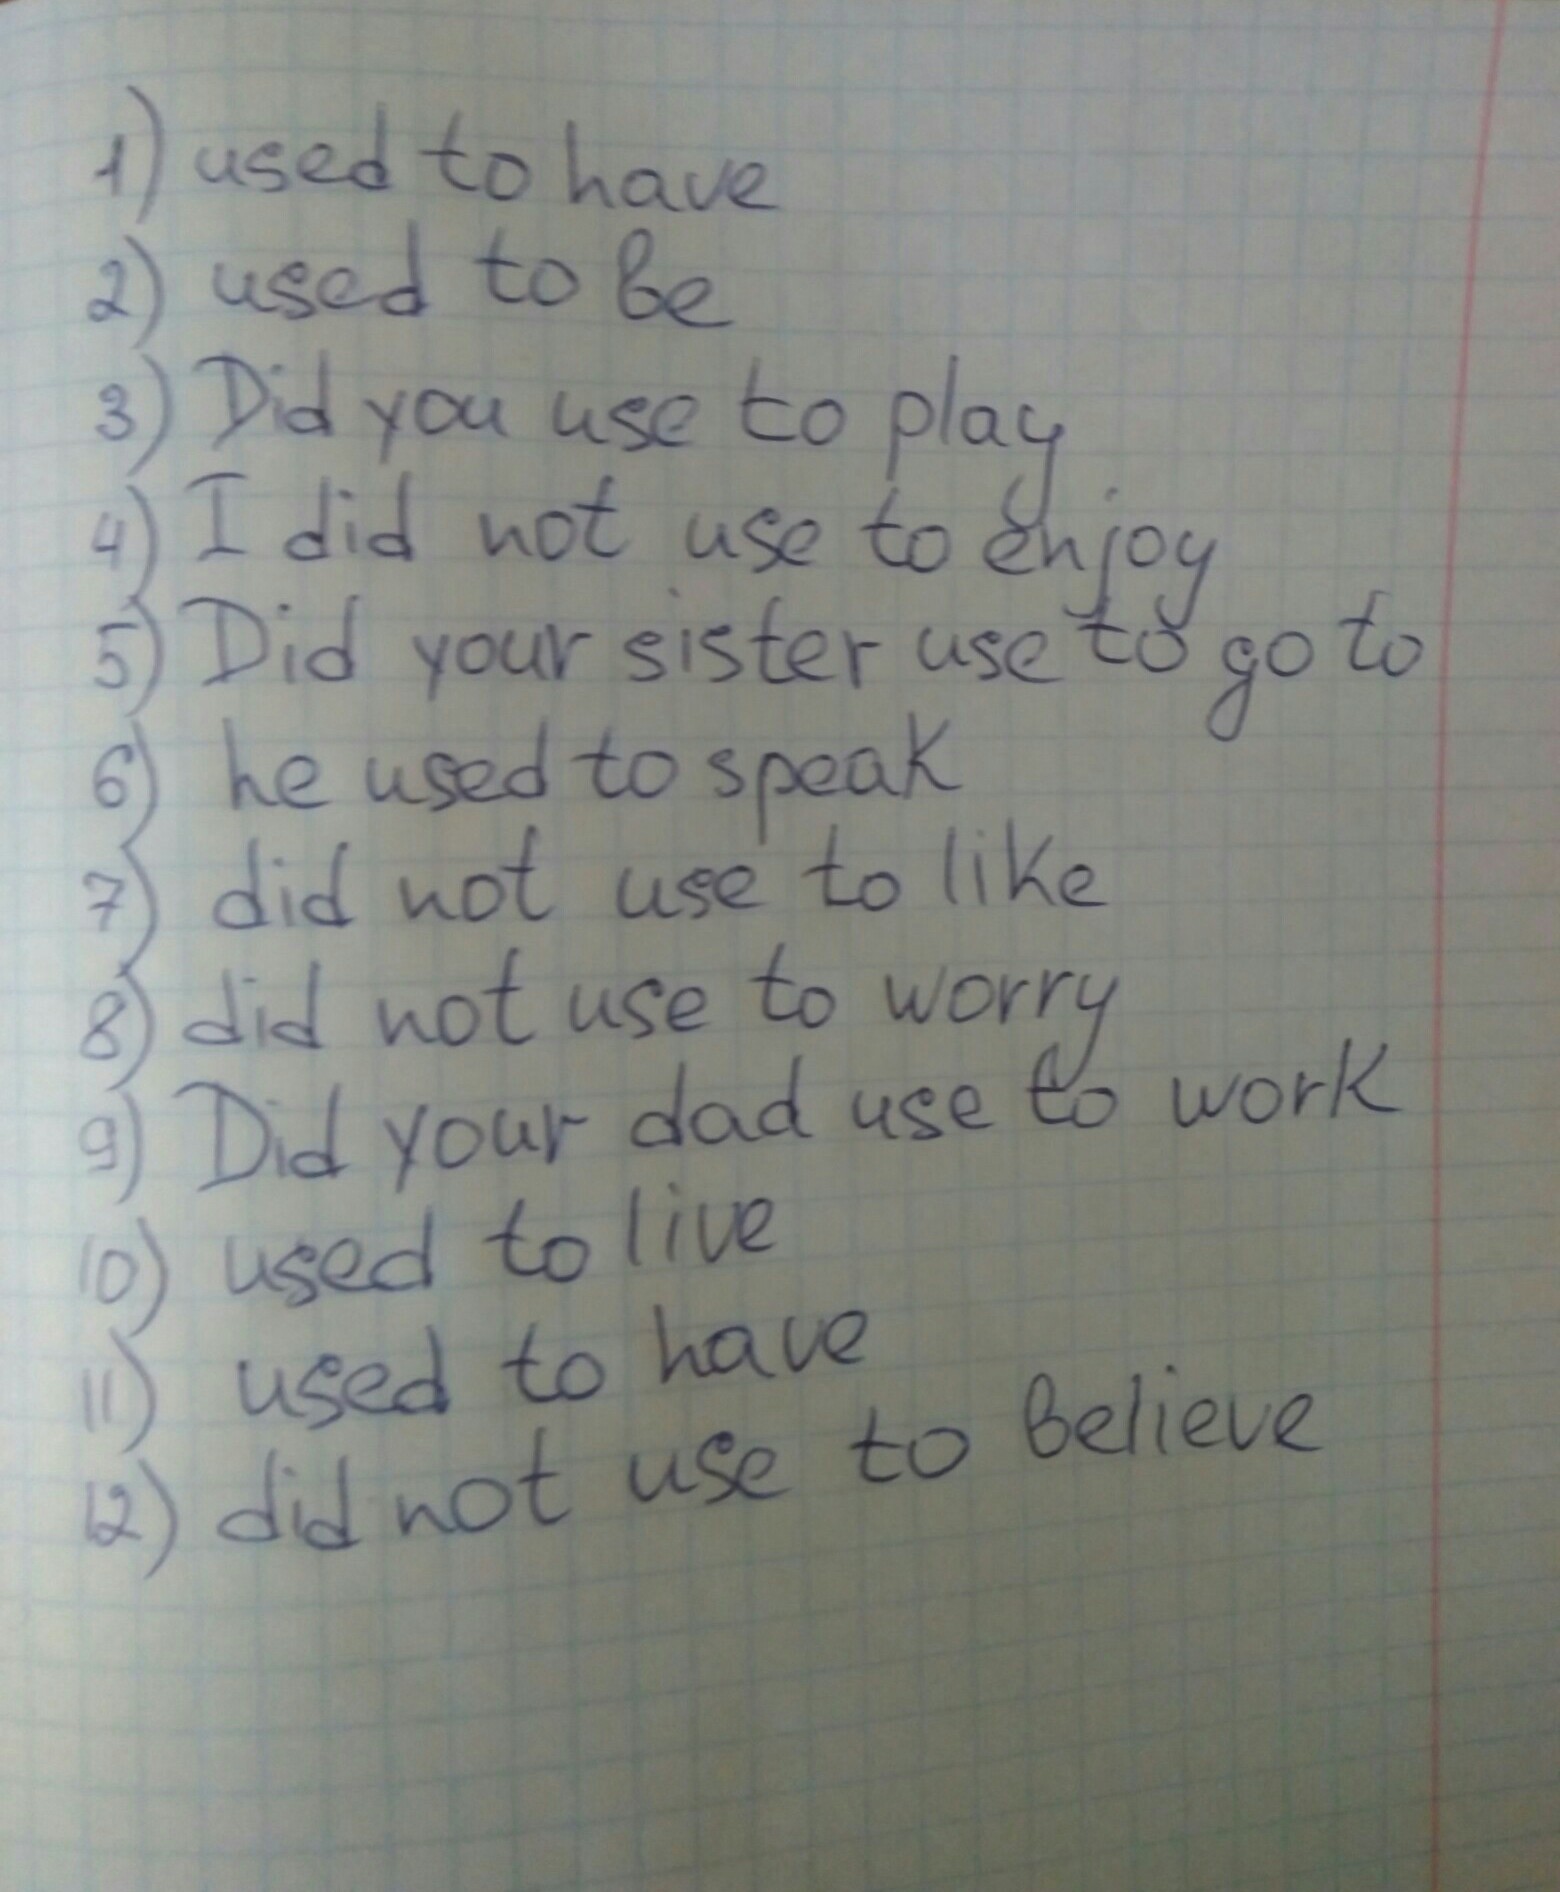 1) used to have
2) used to be
3) Did you use to play
4) I did not use to enjoy
5) Did your sister use to go to
6) he used to speak
7) did not use to like
8) did not use to worry
9) Did your dad use to work
10) used to live
11) used to have
12) did not use to believe